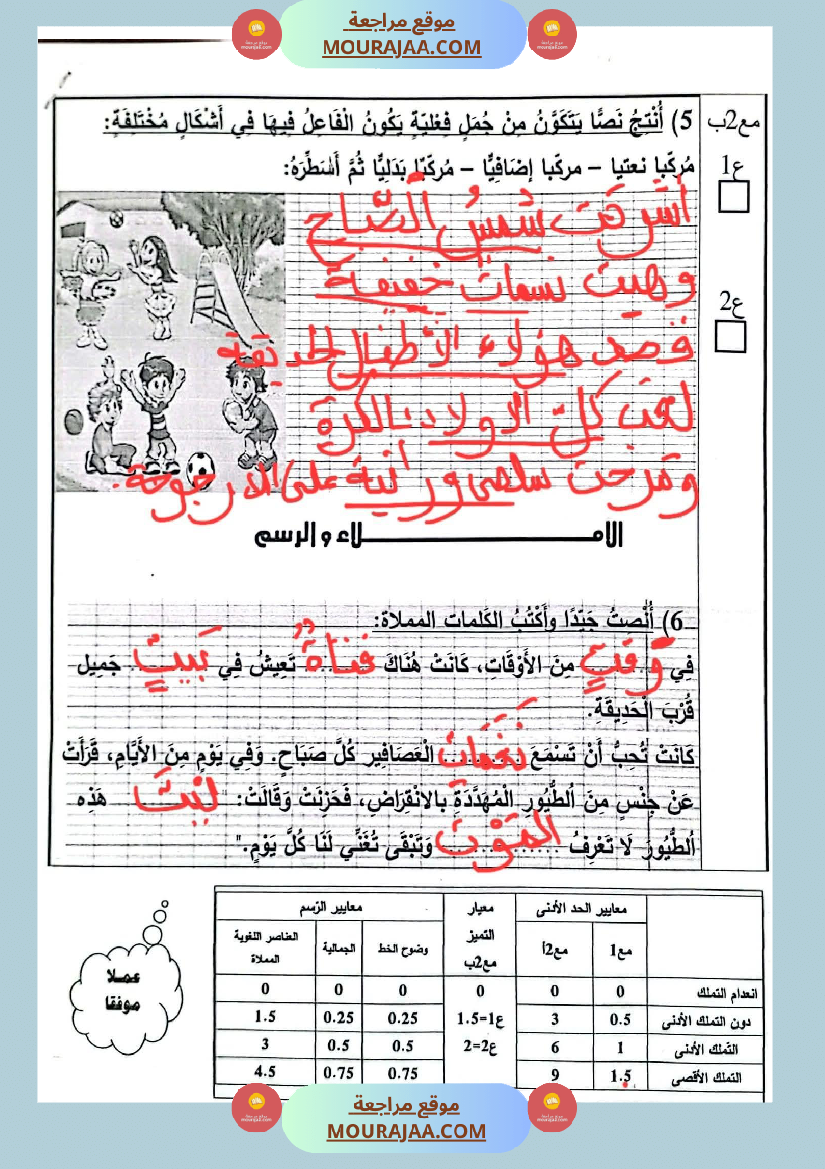 موقع مراجعة
MOURAJAA.COM
مع2ب
5) أُنْتِجُ نَصًّا يَتَكَوَّنُ مِنْ جُمَلٍ فِعْلِيّةٍ يَكُونُ الْفَاعِلُ فِيهَا فِي أَشْكَالٍ مُخْتَلِفَةٍ:
ع1
مُركّبا نعتيا – مركبا إضَافِيًّا – مُركّبًا بَدَلِيًّا ثُمَّ أُسَطِّرَهُ:
أشرقت شمسُ الصّباح
وهبت نسمات خفيفة
ع2
قصد هؤلاء الأطفال الحديقة
لعب كلّ الأولاد بالكرة
ومرحت سلمى ورانية على الارجوحة.
الامــــلاء و الرسم
6) أُنْصِتُ جَيِّدًا وأَكْتُبُ الكَلمات المملاة:
في وَقتٍ مِنَ الأَوْقَاتِ، كَانَتْ هُنَاكَ فتاةٌ تَعِيشُ فِي بَيتٍ جَمِيل
قُرْبَ الْحَدِيقَةِ.
كَانَتْ تُحِبُّ أَنْ تَسْمَعَ نَغَمَاتِ الْعَصَافِير كُلَّ صَبَاحٍ. وَفِي يَوْمٍ مِنَ الأَيَّامِ، قَرَأَتْ
عَنْ جِنْسٍ مِنَ الطُّيُورِ الْمُهَدَّدَةِ بِالانْقِرَاضِ، فَحَزِنَتْ وَقَالَتْ: "لَيْتَ هَذِه
الطُّيُورَ لَا تَعْرِفُ المَوْت وَتَبْقَى تُغَنِّي لَنَا كُلَّ يَوْمٍ."
عملا
موفقا
معايير الحد الأدنى
معيار التميز مع2ب
معايير الرّسم
مع1
مع2أ
وضوح الخط
الجمالية
العناصر اللغوية المملاة
انعدام التملك 0 0 0 0 0 0
دون التملك الأدنى 0.5 3 ع1=1.5 0.25 0.25 1.5
التّملك الأدنى 1 6 ع2=2 0.5 0.5 3
التملك الأقصى 1.5 9 0.75 0.75 4.5
موقع مراجعة
MOURAJAA.COM